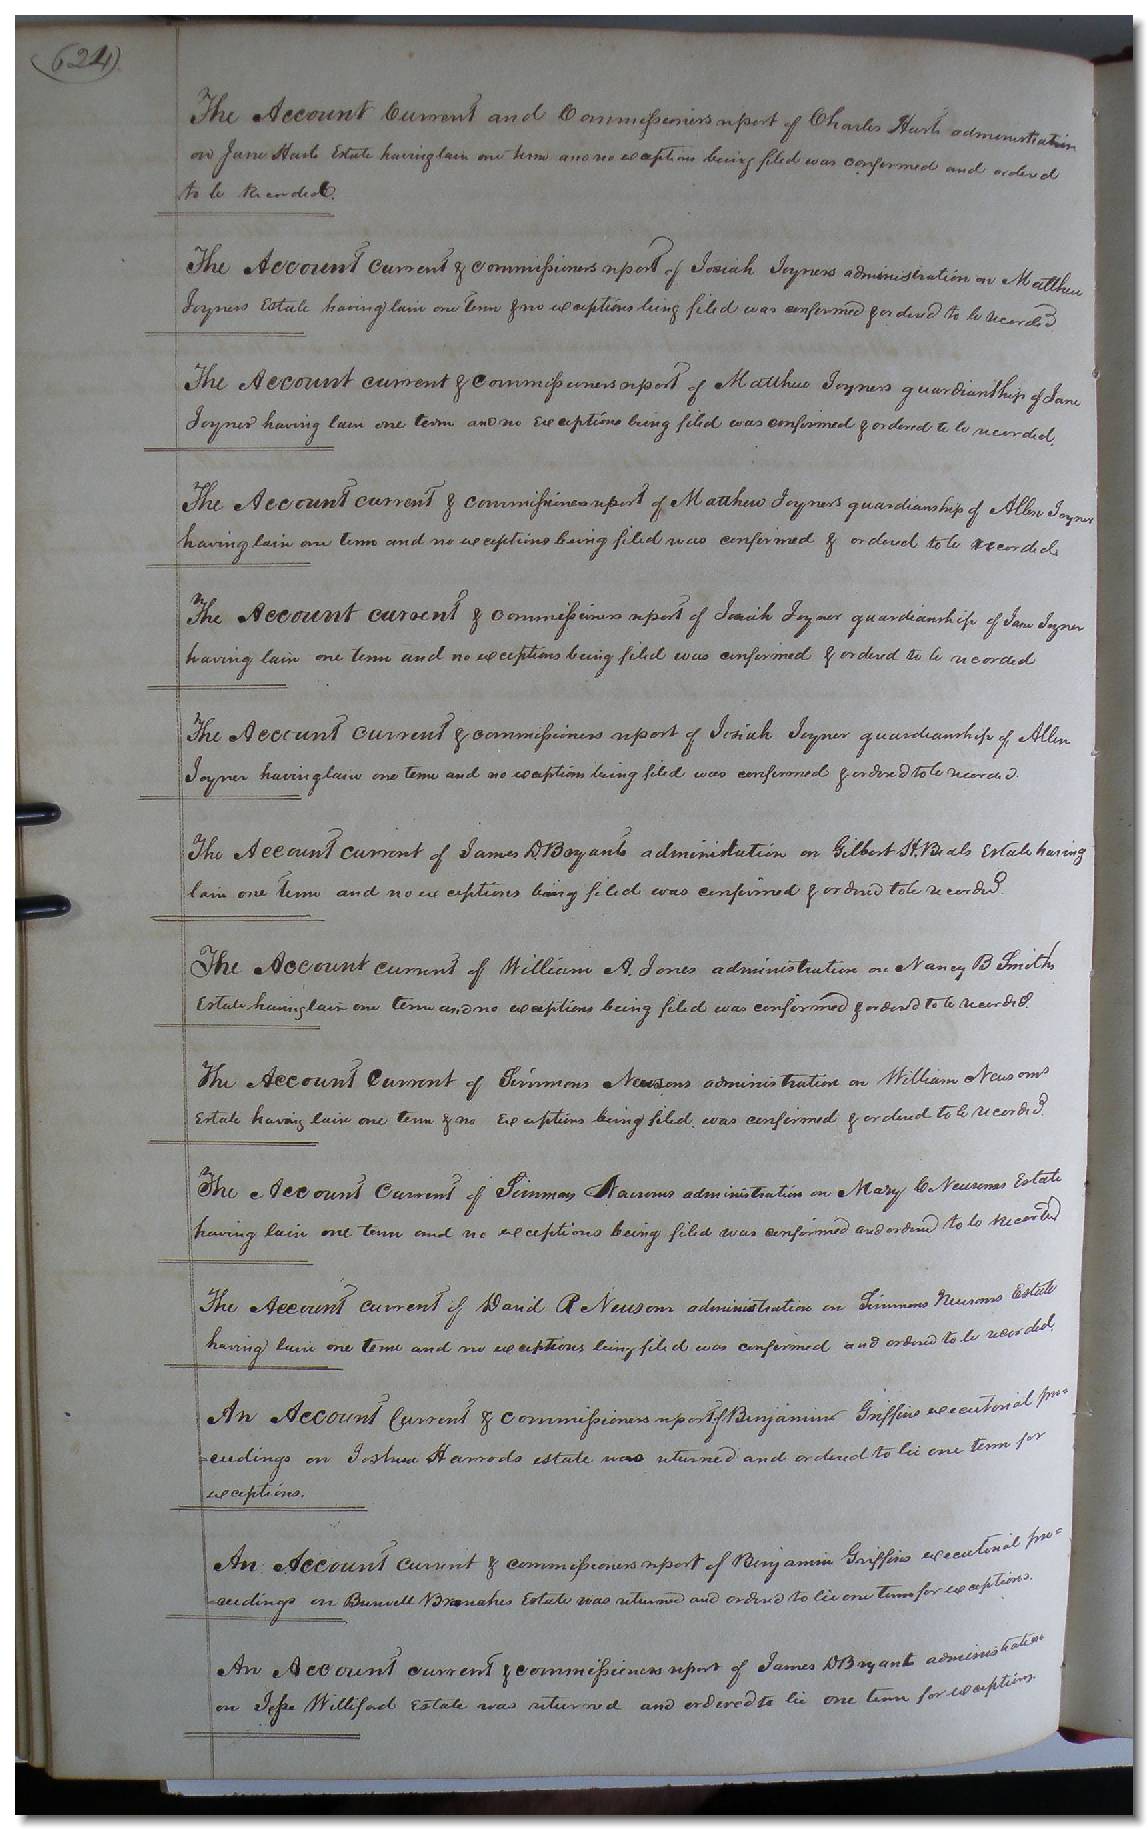 (624)
The Account Current and Commissioners report of Charles Harts administration
on Jane Harts Estate having lain one term and no exceptions being filed was confirmed and ordered
to be Recorded.
The Account Current & Commissioners report of Josiah Joyners administration on Matthew
Joyners Estate having lain one term & no exceptions being filed was confirmed & ordered to be recorded
The Account current & Commissioners report of Matthew Joyners guardianship of Jane
Joyner having lain one term and no Exceptions being filed was confirmed & ordered to be recorded.
The Account current & commissioners report of Matthew Joyners guardianship of Allen Joyner
having lain one term and no exceptions being filed was confirmed & ordered to be recorded
The Account current & Commissioners report of Josiah Joyner guardianship of Jane Joyner
having lain one term and no exceptions being filed was confirmed & ordered to be recorded
The Account Current & commissioners report of Josiah Joyner guardianship of Allen
Joyner having lain one term and no exceptions being filed was confirmed & ordered to be recorded.
The Account current of James D. Bryants administration on Gilbert H. Beals Estate having
lain one term and no exceptions being filed was confirmed & ordered to be recorded
The Account current of William A. Jones administration on Nancy B Smiths
Estate having lain one term and no exceptions being filed was confirmed & ordered to be recorded.
The Account Current of Simmons Newsoms administration on William Newsoms
Estate having lain one term & no Exceptions being filed was confirmed & ordered to be recorded.
The Account Current of Simmons administration on Mary C Newsoms Estate
having lain one term and no exceptions being filed was confirmed and ordered to be recorded
The Account current of David R Newsoms administration on Simmons Newsoms Estate
having lain one term and no exceptions being filed was confirmed and ordered to be recorded
An Account Current & commissioners report of Benjamin Griffins executorial pro=
=ceedings on Joshua Harrods estate was returned and ordered to lie one term for
exceptions.
An Account current & commissioners report of Benjamin Griffins executorial pro=
=ceedings on Estate was returned and ordered to lie one term for exceptions.
An Account current & commissioners report of James D Bryants administration
on Jesse Williford Estate was returned and ordered to lie one term for exceptions